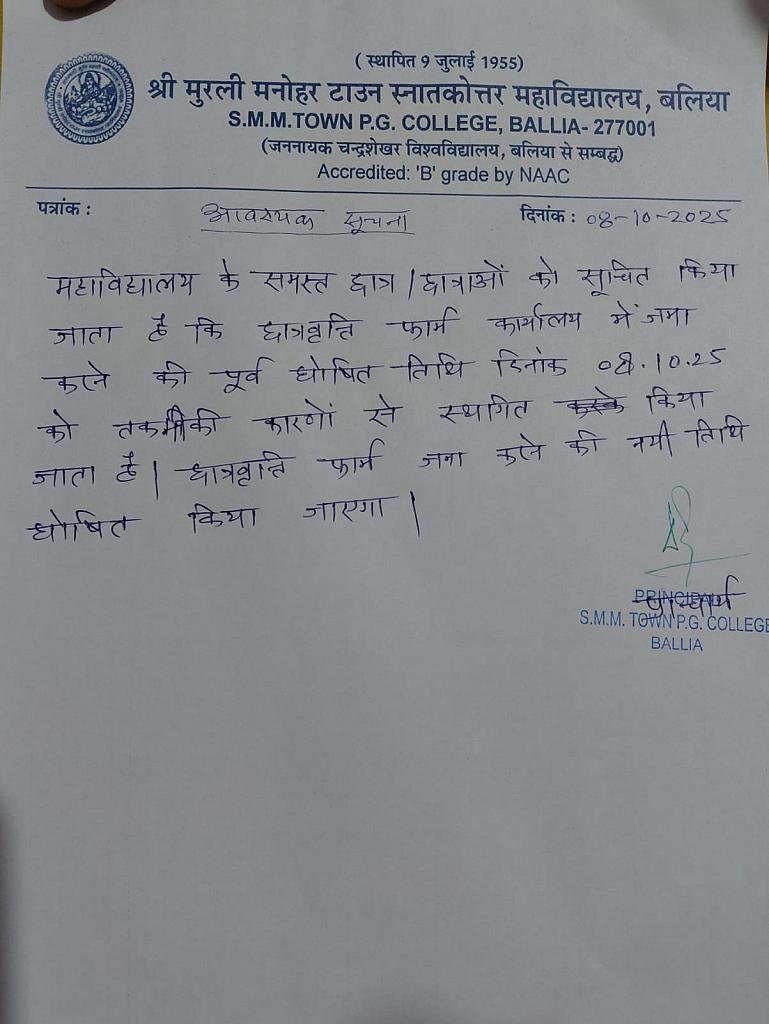 ( स्थापित 9 जुलाई 1955)
श्री मुरली मनोहर टाउन स्नातकोत्तर महाविद्यालय, बलिया
S.M.M.TOWN P.G. COLLEGE, BALLIA- 277001
(जननायक चन्द्रशेखर विश्वविद्यालय, बलिया से सम्बद्ध)
Accredited: 'B' grade by NAAC
पत्रांक : आवश्यक सूचना दिनांक : 08-10-2025
महाविद्यालय के समस्त छात्र / छात्राओं को सूचित किया
जाता है कि छात्रवृत्ति फार्म कार्यालय में जमा
करने की पूर्व घोषित तिथि दिनांक 08.10.25
को तकनीकी कारणों से स्थगित किया
जाता है | छात्रवृत्ति फार्म जमा करने की नयी तिथि
घोषित किया जाएगा |
प्राचार्य
PRINCIPAL
S.M.M. TOWN P.G. COLLEGE
BALLIA